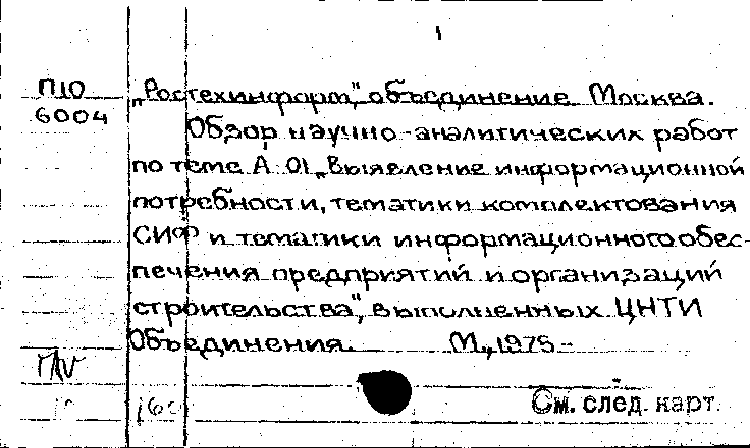 1
П10
6004
„Ростехинформ", объединение. Москва.
Обзор научно-аналитических работ
по теме А. 01 „Выявление информационной
потребности, тематики комплектования
СИФ и тематики информационного обес-
печения предприятий и организаций
строительства", выполненных ЦНТИ
Объединения. М., 1975-
См. след. карт.